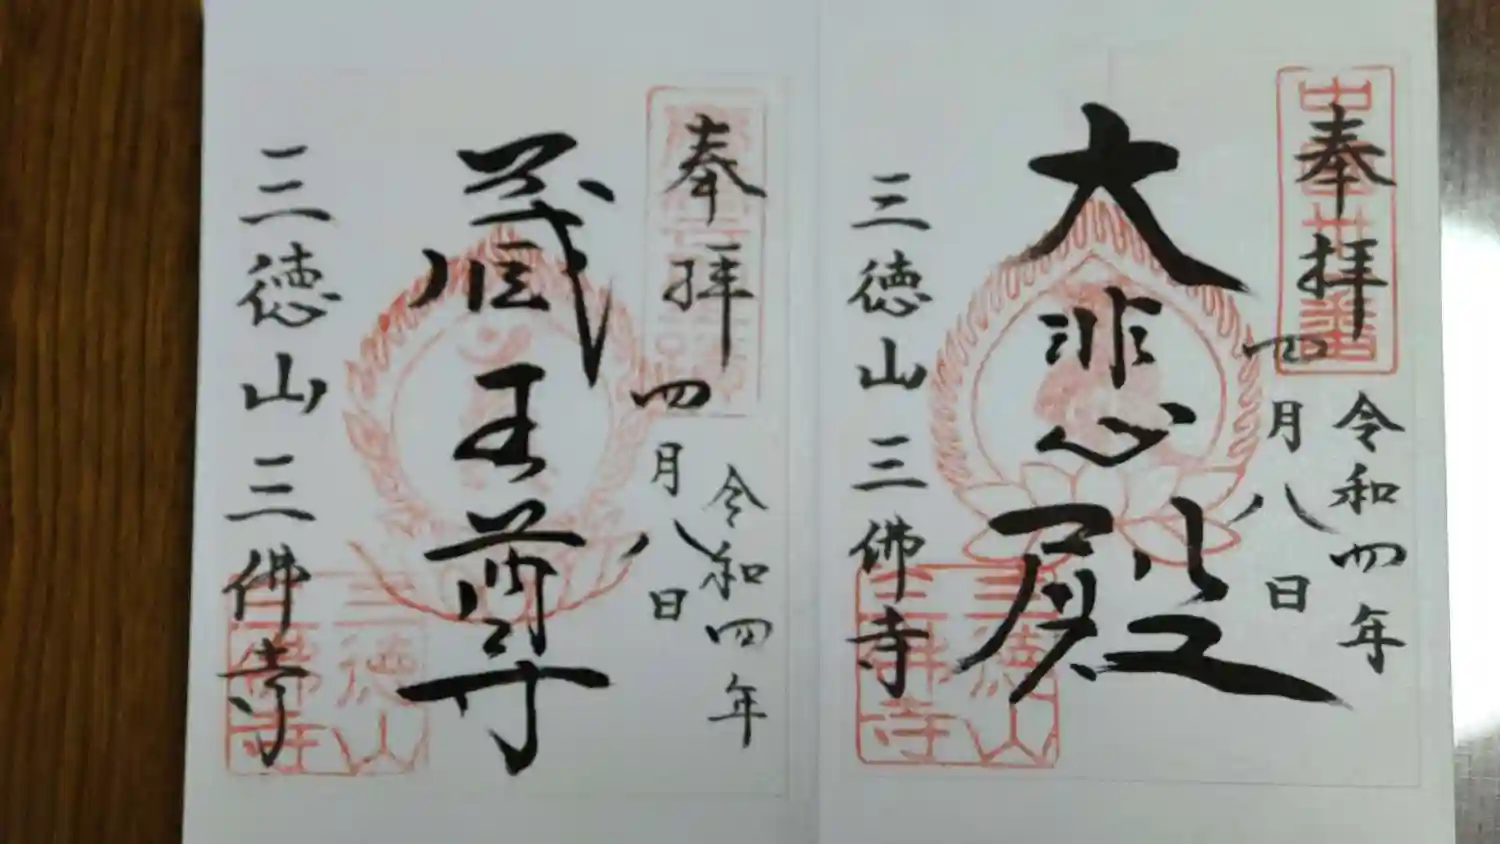 奉拝
令和四年
四月八日
大悲殿
三徳山三佛寺
三徳山
三佛寺
奉拝
令和四年
四月八日
蔵王尊
三徳山三佛寺
三徳山
三佛寺